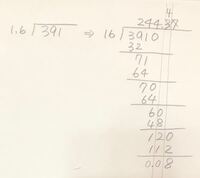 4
244 37
1.6 ⟌ 391 ⇒ 16 ⟌ 3910
32
71
64
70
64
60
48
120
112
0.08